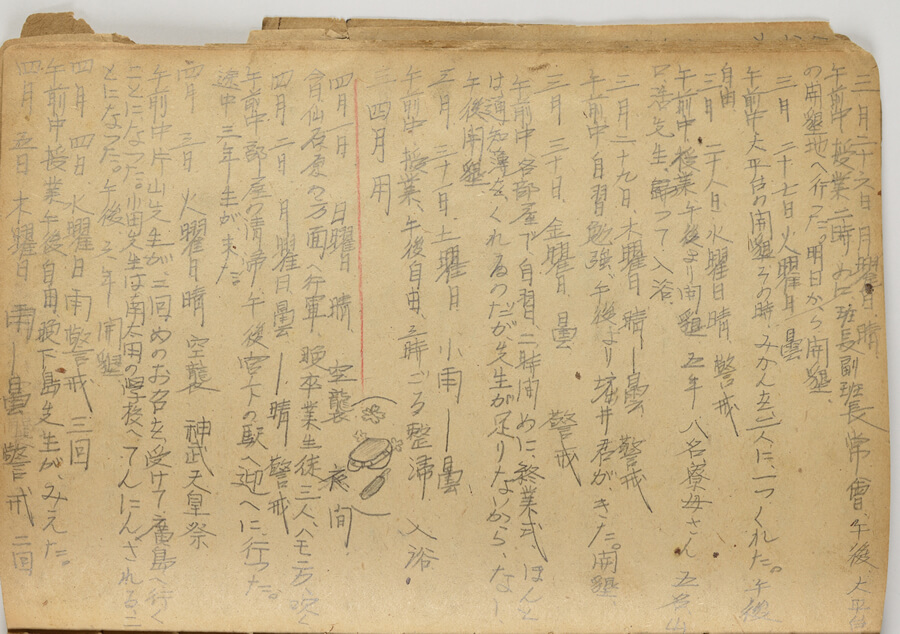 三月二十六日 月曜日 晴
午前中授業二時 班長副班長常會、午後 大平台
の開墾地へ行った。明日から開墾、
三月 二十七日 火曜日 曇
午前中大平台の開墾その時、みかんを二人に一つくれた。午後
自由
三月 二十八日 水曜日 晴、警戒
午前 授業 午後より開墾 五年 八名寮母さん 五名
先生、帰って 入浴
三月二十九日、木曜日 晴ー曇 警戒
午前中 自習勉強、午後より 君がきた。開墾
三月 三十日、金曜日 曇 警戒
午前中 各部屋で自習、二時間めに、終業式、ほんと
は通知簿をくれるのだが先生が足りないから、なし
午後開墾
三月 三十一日、土曜日 小雨ー曇、
午前中 授業、午後自由、三時ごろ整掃 入浴
四月
四月一日 日曜日 晴、空襲 夜間
仙石原の方面へ行軍 晩卒業生徒三人、
四月 二日 月曜日 曇ー晴 警戒
午前中部屋の清掃、午後宮ノ下の駅へ迎へに、行った。
途中 三年生が来た。
四月 三日 火曜日 晴 空襲 神武天皇祭
午前中片山先生が、三回めのお召を受けて廣島へ行く
ことになった。小田先生は南太田の学校へてんにんされるこ
とになった。午後 開墾
四月 四日 水曜日 雨 警戒 三回
午前中授業午後自由 晩下島先生が、みえた。
四月 五日 木曜日 雨ー曇 警戒 二回